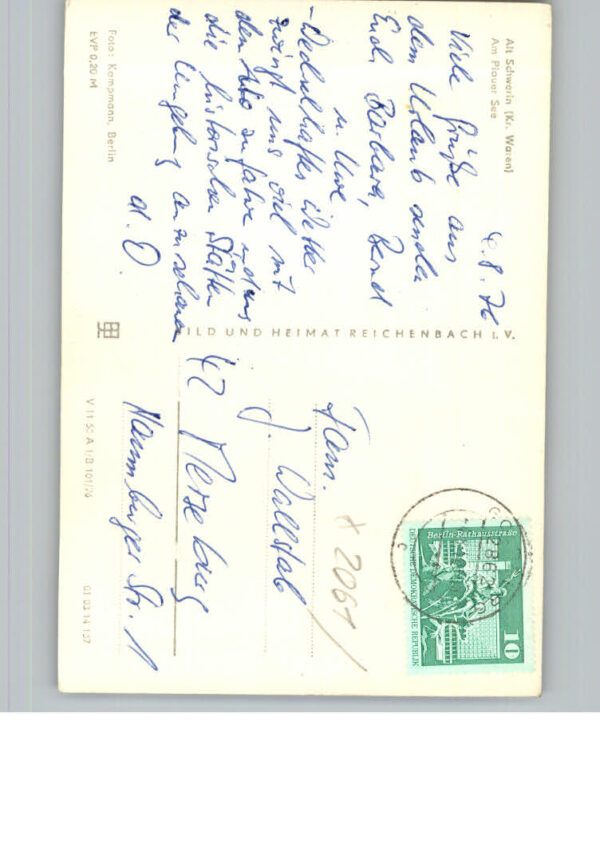 Alt Schwerin (Kr. Waren)
Am Plauer See
4.8.76
Viele Grüße aus
dem Urlaub senden
Euch Barbara, Bernd
u. Uwe
- Wechselhaftes Wetter
zwingt uns viel mit
dem Auto zu fahren und uns
die historischen Stätten
der Umgebung anzuschauen
d. O.
Foto: Kampmann, Berlin
EVP 0,20 M
BILD UND HEIMAT REICHENBACH i. V.
Fam.
J. Wallstab
42 Merseburg
Naumburger Str. 1
x 2061
V 11 50 A 1/B 101/76
01 03 14 157
Berlin-Rathausstraße
DEUTSCHE DEMOKRATISCHE REPUBLIK
10